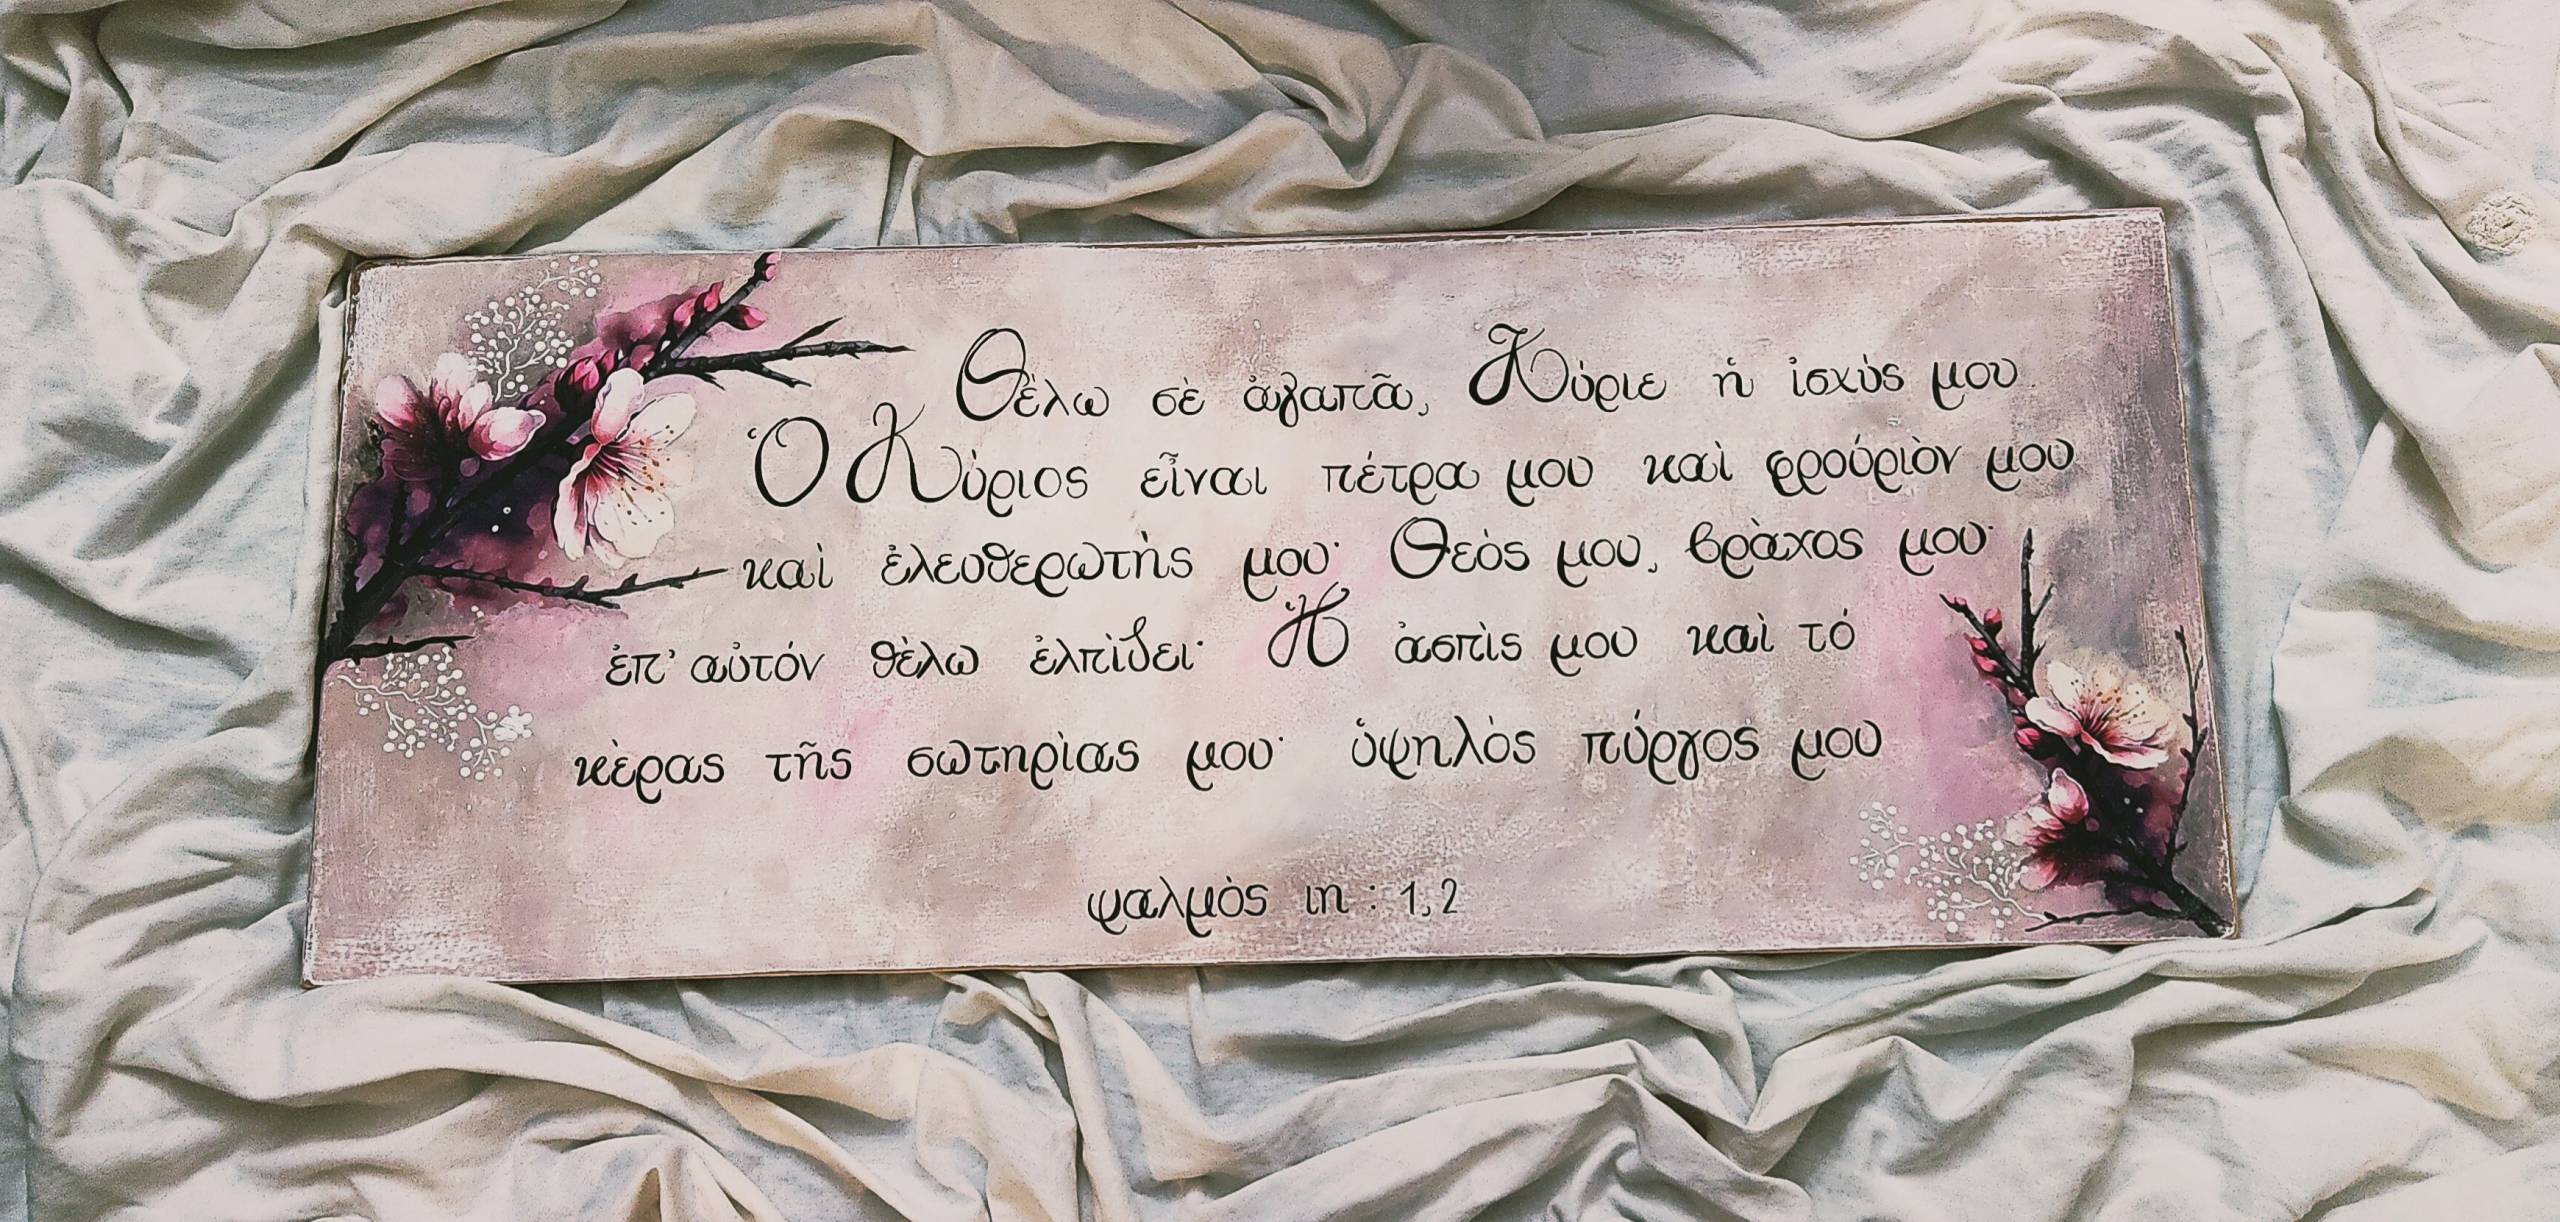 Θὲλω σὲ ἀγαπᾶ, Κύριε ἡ ἰσχύς μου.
Ὁ Κύριος εἶναι πέτρα μου καὶ φρούριὸν μου
καὶ ἐλευθερωτὴς μου· Θεὸς μου, βρὰχος μου·
ἐπ' αὐτόν θὲλω ἐλπὶζει· Ἡ ἀσπὶς μου καὶ τό
κὲρας τῆς σωτηρὶας μου· ὑψηλὸς πύργος μου
ψαλμὸς ιη : 1,2